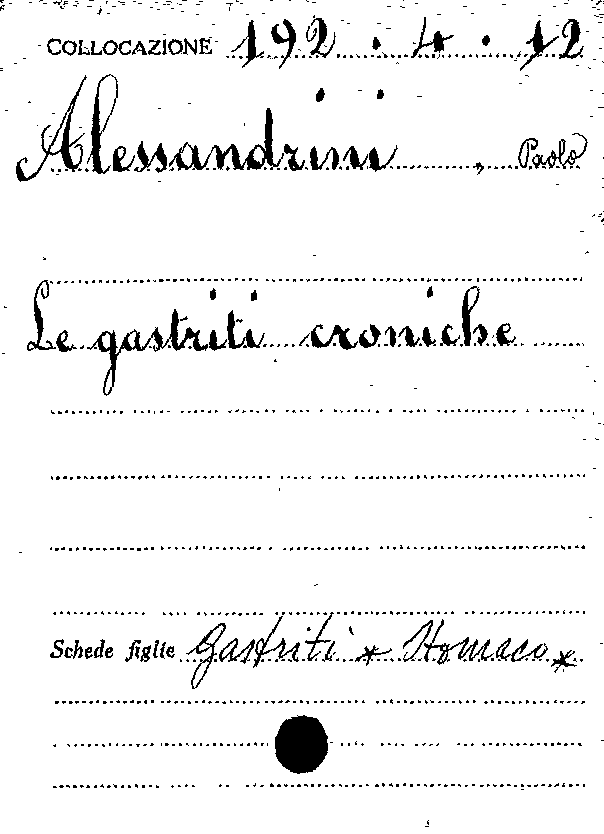 COLLOCAZIONE 192 . 4 . 12
Alessandrini , Paolo
Le gastriti croniche
Schede figlie Gastriti * Stomaco *